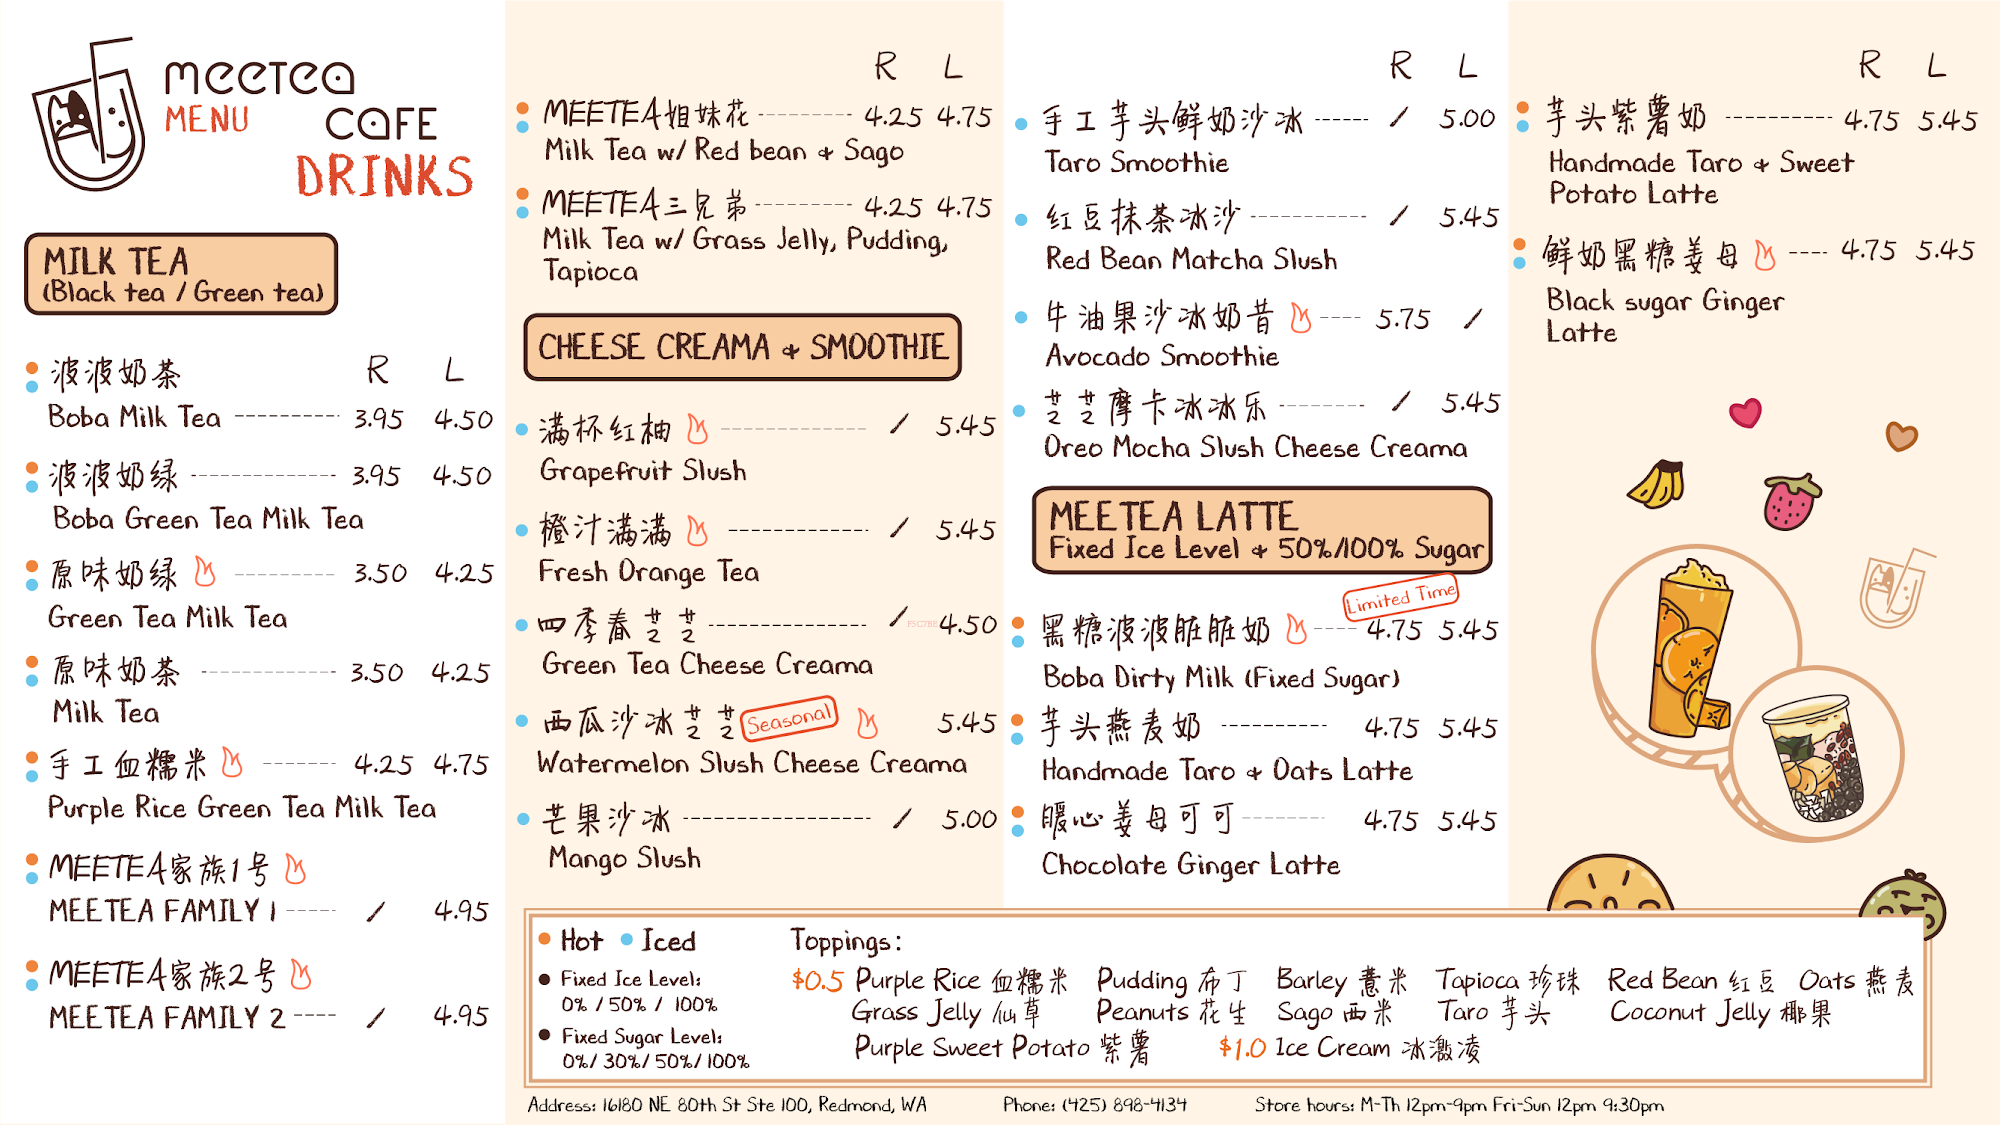 MEETEA
MENU
CAFE
DRINKS
MILK TEA
(Black tea / Green tea)
R L
波波奶茶
Boba Milk Tea 3.95 4.50
波波奶绿 3.95 4.50
Boba Green Tea Milk Tea
原味奶绿 3.50 4.25
Green Tea Milk Tea
原味奶茶 3.50 4.25
Milk Tea
手工血糯米 4.25 4.75
Purple Rice Green Tea Milk Tea
MEETEA家族1号
MEETEA FAMILY 1 / 4.95
MEETEA家族2号
MEETEA FAMILY 2 / 4.95
R L
MEETEA姐妹花 4.25 4.75
Milk Tea w/ Red bean & Sago
MEETEA三兄弟 4.25 4.75
Milk Tea w/ Grass Jelly, Pudding,
Tapioca
CHEESE CREAMA & SMOOTHIE
满杯红柚 / 5.45
Grapefruit Slush
橙汁满满 / 5.45
Fresh Orange Tea
四季春芝芝 / 4.50
Green Tea Cheese Creama
西瓜沙冰芝芝 Seasonal 5.45
Watermelon Slush Cheese Creama
芒果沙冰 / 5.00
Mango Slush
R L
手工芋头鲜奶沙冰 / 5.00
Taro Smoothie
红豆抹茶冰沙 / 5.45
Red Bean Matcha Slush
牛油果沙冰奶昔 5.75 /
Avocado Smoothie
芝芝摩卡冰冰乐 / 5.45
Oreo Mocha Slush Cheese Creama
MEETEA LATTE
Fixed Ice Level & 50%/100% Sugar
Limited Time
黑糖波波脏脏奶 4.75 5.45
Boba Dirty Milk (Fixed Sugar)
芋头燕麦奶 4.75 5.45
Handmade Taro & Oats Latte
暖心姜母可可 4.75 5.45
Chocolate Ginger Latte
R L
芋头紫薯奶 4.75 5.45
Handmade Taro & Sweet
Potato Latte
鲜奶黑糖姜母 4.75 5.45
Black sugar Ginger
Latte
Hot Iced
Fixed Ice Level:
0% / 50% / 100%
Fixed Sugar Level:
0%/ 30%/ 50%/ 100%
Toppings:
$0.5 Purple Rice 血糯米 Pudding 布丁 Barley 薏米 Tapioca 珍珠 Red Bean 红豆 Oats 燕麦
Grass Jelly 仙草 Peanuts 花生 Sago 西米 Taro 芋头 Coconut Jelly 椰果
Purple Sweet Potato 紫薯 $1.0 Ice Cream 冰激凌
Address: 16180 NE 80th St Ste 100, Redmond, WA Phone: (425) 898-4134 Store hours: M-Th 12pm-9pm Fri-Sun 12pm 9:30pm